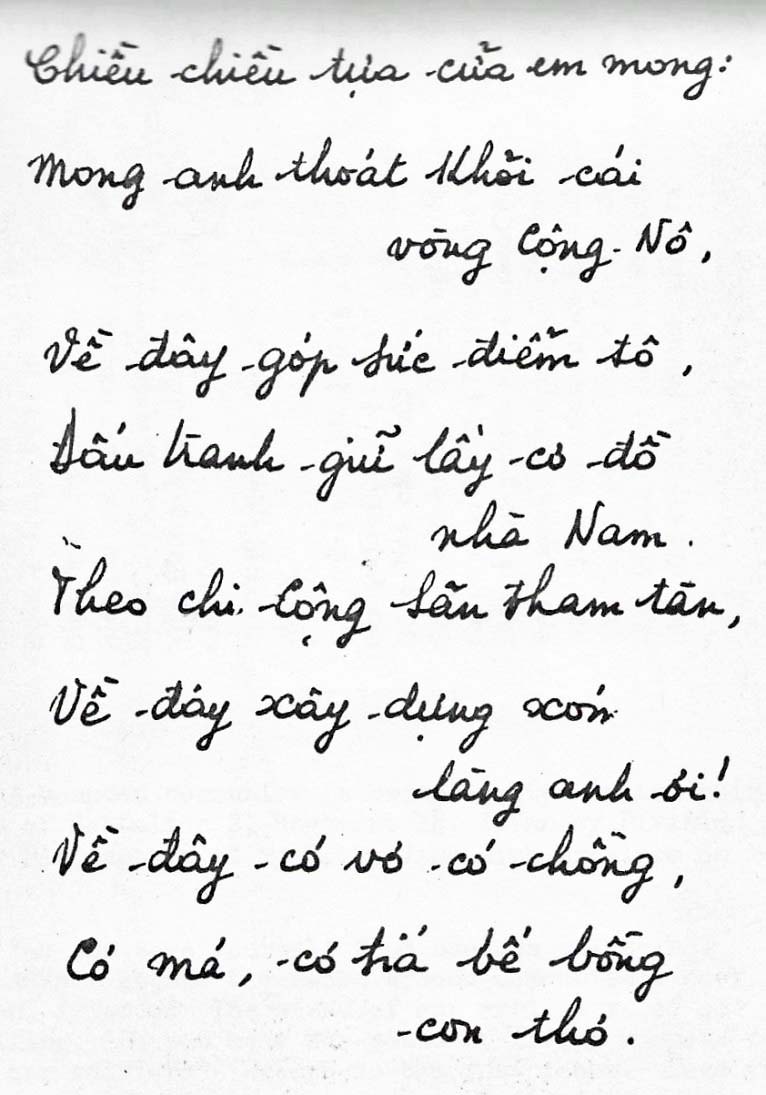 Chiều chiều tựa cửa em mong:
Mong anh thoát khỏi cái
vòng Cộng-Nô,
Về đây góp sức điểm tô,
Đấu tranh giữ lấy cơ đồ
nhà Nam.
Theo chi Cộng sản tham tàn,
Về đây xây dựng xóm
làng anh ơi!
Về đây có vợ có chồng,
Có má, có tía bế bồng
con thơ.